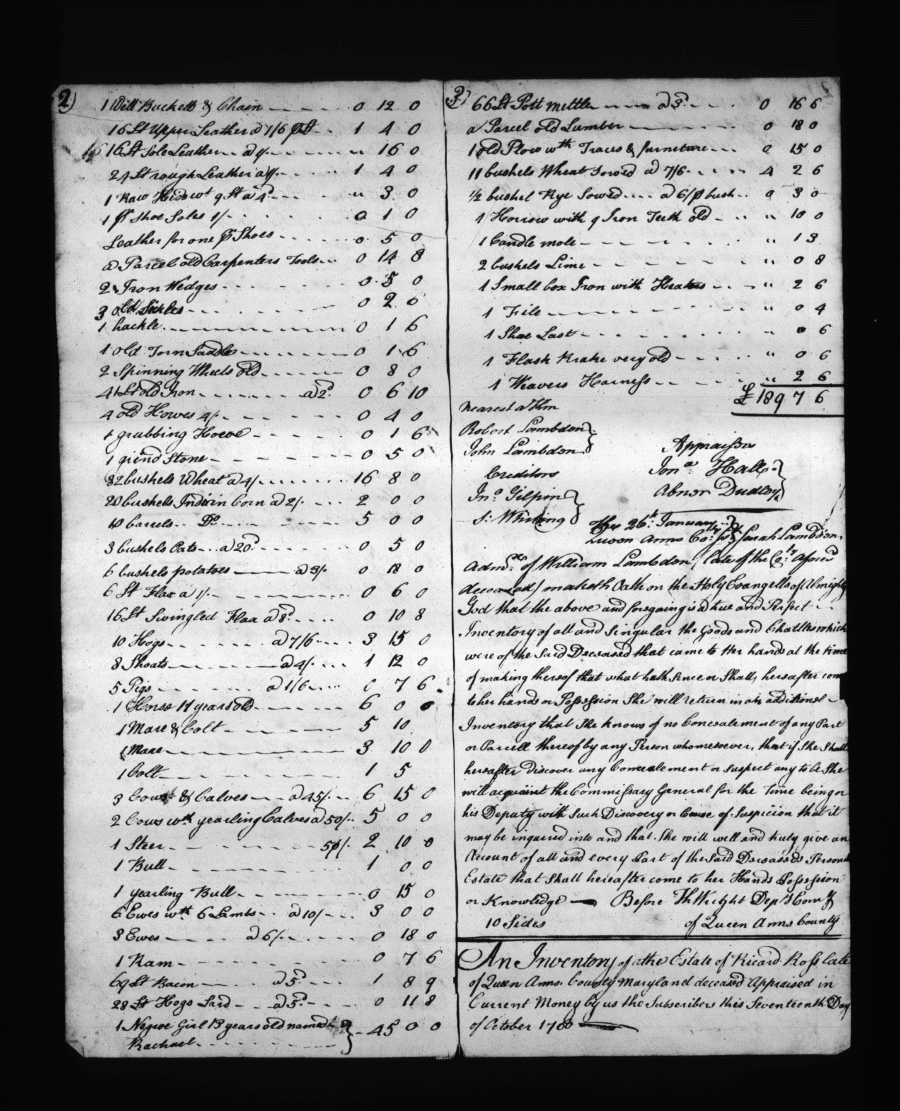 2)
1 Well Bucket & Chain 0 12 0
16 lt Upper Leather a 1/6 plt 1 4 0
16 lt Sole Leather a 1/ " 16 0
24 lt rough Leather a 1/ 1 4 0
1 Raw Hide wt 9 lt a 4d " 3 0
1 pr Shoe Soles 1/ 0 1 0
Leather for one pr Shoes 0 5 0
a Parcel old Carpenters Tools 0 14 8
2 Iron Wedges 0 5 0
3 old Sickles 0 2 0
1 hackle 0 1 6
1 old Torn Saddle 0 1 6
2 Spinning Wheels old 0 8 0
41 lt old Iron a 2d 0 6 10
4 old Howes 1/ 0 4 0
1 grubbing Howe 0 1 6
1 grind Stone 0 5 0
82 bushels Wheat a 4/ 16 8 0
20 bushels Indian Corn a 2/ 2 0 0
10 barrels Do 5 0 0
3 bushels Oats a 20d 0 5 0
6 bushels potatoes a 3/ 0 18 0
6 lt Flax a 1/ 0 6 0
16 lt Swingled Flax a 8d 0 10 8
10 Hogs a 7/6 3 15 0
8 Shoats a 4/ 1 12 0
5 Pigs a 1/6 0 7 6
1 Horse 11 years old 6 0 0
1 Mare & Colt 5 10
1 Mare 3 10 0
1 Colt 1 5
3 Cows & Calves a 45/ 6 15 0
2 Cows wth yearling Calves a 50/ 5 0 0
1 Steer 50/ 2 10 0
1 Bull 1 0 0
1 yearling Bull 0 15 0
6 Ewes wth 6 Lambs a 10/ 3 00 0
3 Ewes a 6/ 0 18 0
1 Ram 0 7 6
69 lt Bacon a 5d 1 8 9
28 lt Hogs Lard a 5d 0 11 8
1 Negroe Girl 13 years old named 45 0 0
Rachael
3)
66 lt Pott mettle a 3d 0 16 6
a Parcel old Lumber 0 18 0
1 old Plow wth Traces & furneture 0 15 0
11 bushels Wheat Sowed a 7/6 4 2 6
½ bushel Rye Sowed a 6/ p bush 0 3 0
1 Horrow with 9 Iron Teeth old " 10 0
1 Candle mole " 1 3
2 bushels Lime " 0 8
1 Small box Iron with Heates " 2 6
1 File " 0 4
1 Shoe Last " 0 6
1 Flask Brake very old " 0 6
1 Weavers Harness " 2 6
£ 189 7 6
Nearest a Kin
Robert Lambdon
John Lambdon
Creditors
Jno Gilpin
S. Whiting
Appraisors
Jona Hall
Abner Dudley
The 26th January
Queen Anns Coty Sarah Lambdon,
Admx of William Lambdon, (late of the Coty aforsd
deceased) maketh Oath on the Holy Evangells of Almighty
God that the above and foregoing is a true and Perfect
Inventory of all and Singular the Goods and Chattles which
were of the Said Deceased that came to Her hands at the time
of making thereof that what hath Since or Shall, hereafter come
to her hands or Possession She will return in an additional
Inventory that She knows of no Concealement of any Part
or Parcell thereof by any Person whomesoever, that if She Shall
hereafter discover any Concealement or Suspect any to be She
will acquaint the Commissary General for the Time being or
his Deputy with Such Discovery or Cause of Suspicion that it
may be inquired into and that She will well and truly give an
Account of all and every Part of the Said Deceaseds Personal
Estate that Shall hereafter come to her Hands Possession
or Knowledge Before Th Wright Depy Comy
10 Sides of Queen Anns County
An Inventory of the Estate of Ricard Ross late
of Queen Anns County Maryland deceasd Appraised in
Current Money by us the Subscribers this Seventeenth Day
of October 1760